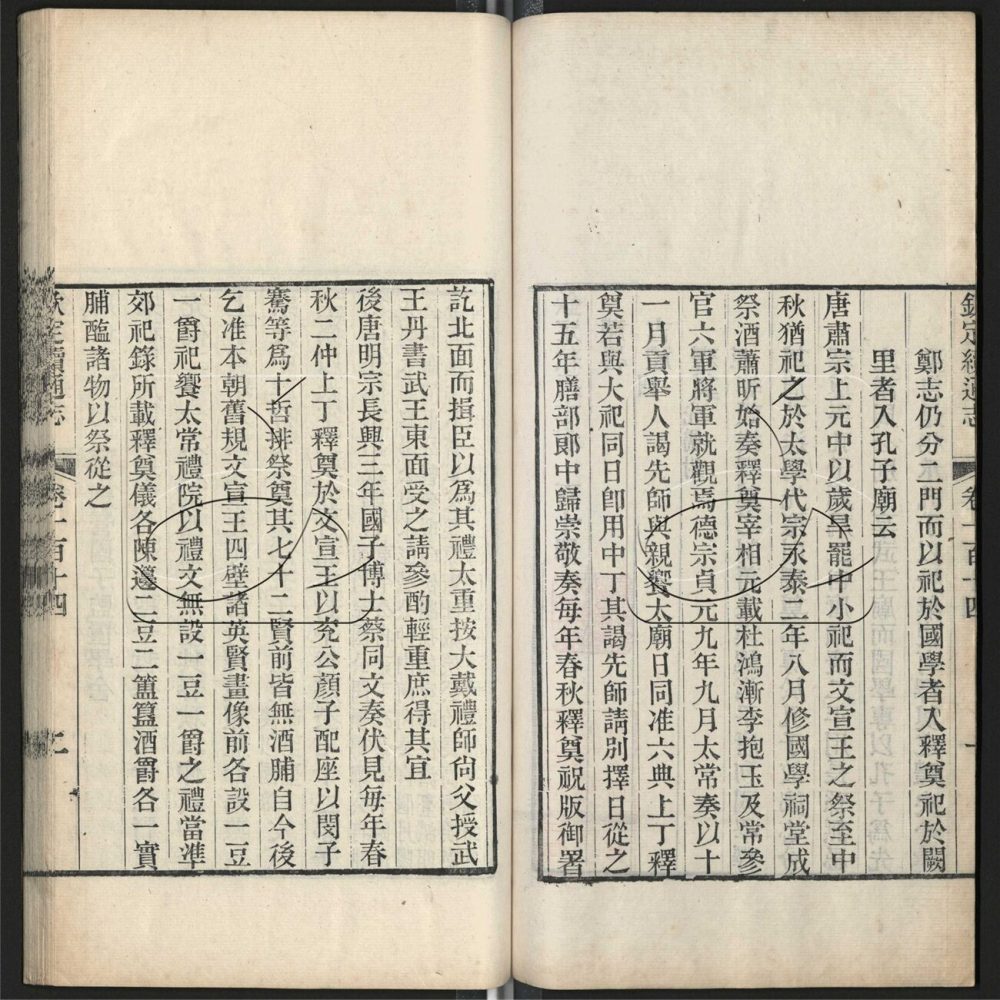 欽定續通志 卷一百十四 一
鄭志仍分二門而以祀於國學者入釋奠祀於闕
里者入孔子廟云
唐肅宗上元中以歲旱罷中小祀而文宣王之祭至中
秋猶祀之於太學代宗永泰二年八月修國學祠堂成
祭酒蕭昕始奏釋奠宰相元載杜鴻漸李抱玉及常參
官六軍將軍就觀焉德宗貞元九年九月太常奏以十
一月貢舉人謁先師與親饗太廟日同准六典上丁釋
奠若與大祀同日卽用中丁其謁先師請別擇日從之
十五年膳部郞中歸崇敬奏每年春秋釋奠祝版御署
訖北面而揖臣以爲其禮太重按大戴禮師尙父授武
王丹書武王東面受之請參酌輕重庶得其宜
後唐明宗長興三年國子博士蔡同文奏伏見每年春
秋二仲上丁釋奠於文宣王以兖公顏子配座以閔子
騫等爲十哲排祭奠其七十二賢前皆無酒脯自今後
乞准本朝舊規文宣王四壁諸英賢畫像前各設一豆
一爵祀饗太常禮院以禮文無設一豆一爵之禮當準
郊祀錄所載釋奠儀各陳籩二豆二簠簋酒爵各一實
脯醢諸物以祭從之
欽定續通志 卷一百十四